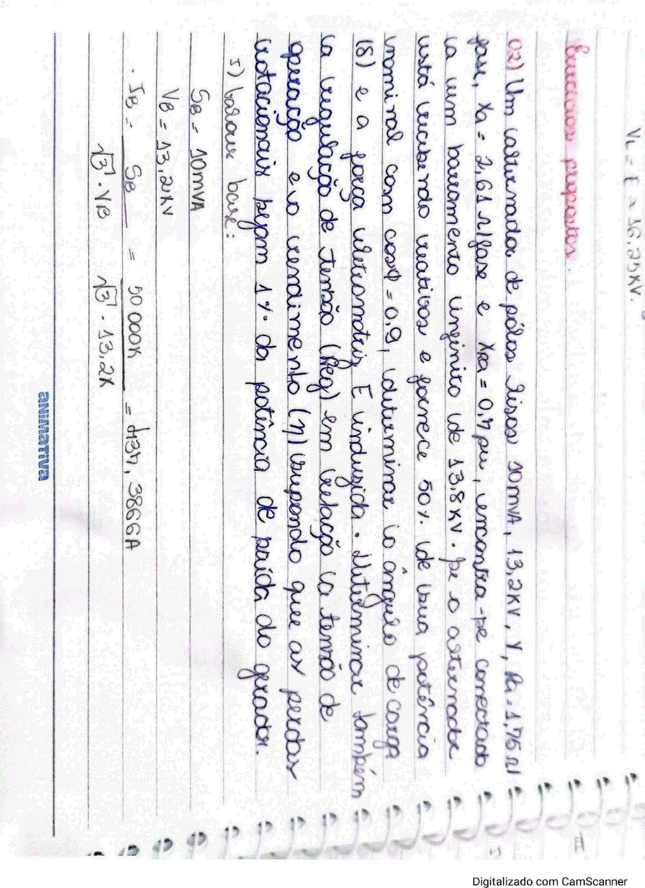 VL = E = 16,25KV.
Exercícios propostos.
02) Um alternador de pólos lisos 10mVA, 13,2KV, Y, Ra = 1,75 Ω/
fase, Xa = 2,61 Ω/fase e XRa = 0,7 pu, encontra-se conectado
a um barramento infinito de 13,8KV. Se o alternador
está recebendo reativos e fornece 50% de sua potência
nominal com cosφ = 0,9, determinar o ângulo de carga
(δ) e a força eletromotriz E induzida. Determinar também
a regulação de tensão (Reg) em relação a tensão de
operação e o rendimento (η) supondo que as perdas
rotacionais sejam 1% da potência de saída do gerador.
I) base:
SB = 10mVA
VB = 13,2KV
. IB = SB / √3 . VB = 10 000K / √3 . 13,2K = 437,3866A
animativa
Digitalizado com CamScanner